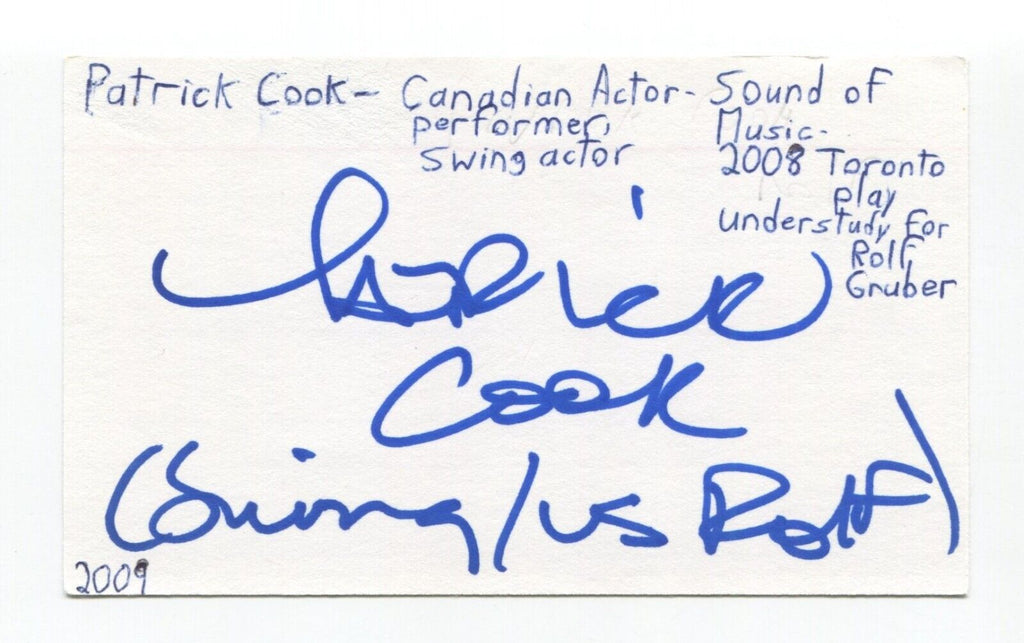 Patrick Cook- Canadian Actor- Sound of
performer, Music-
swing actor 2008 Toronto
play
understudy for
Rolf,
Gruber
Patrick
Cook
(Swing/us Rolf)
2009